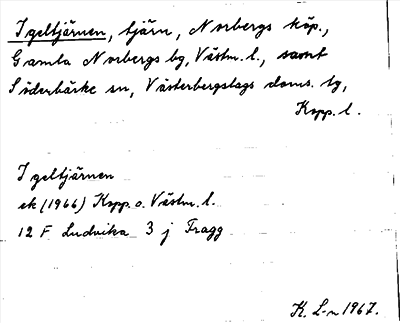 Igeltjärnen, tjärn, Norbergs köp.,
Gamla Norbergs bg, Västm. l., samt
Söderbärke sn, Västerbergslags doms. tg,
Kopp. l.
Igeltjärnen
ek (1966) Kopp. o. Västm. l.
12 F Ludvika 3 j Fragg
K. L-n 1967.